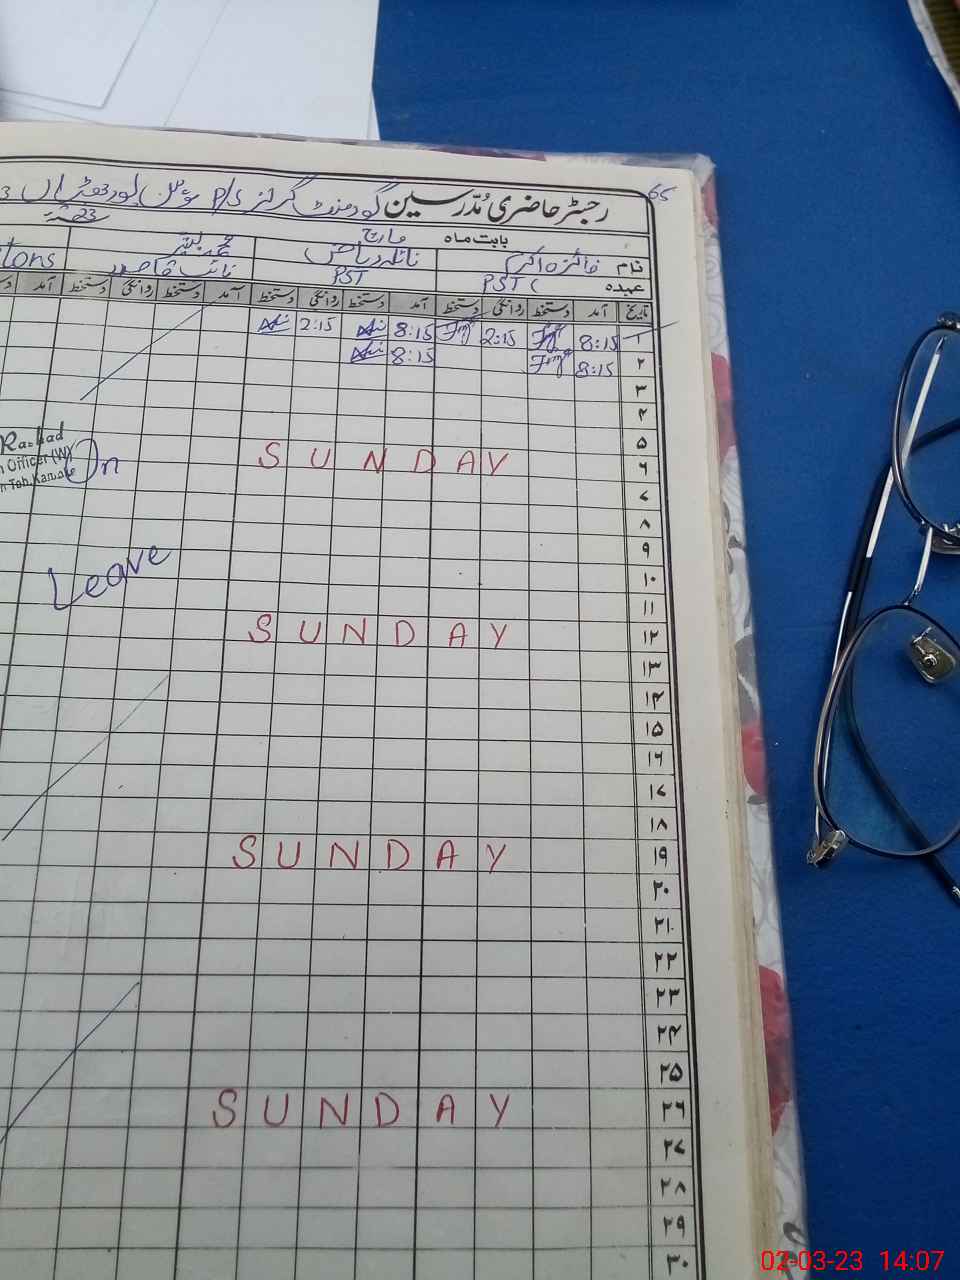 65
رجسٹر حاضری مُدّرسین گورنمنٹ گرلز P/S
بابت ماہ مارچ
نام فائزہ اکرم نائلہ ریاض
عہدہ PST PST نائب قاصد
تاریخ آمد دستخط روانگی دستخط آمد دستخط روانگی دستخط آمد دستخط روانگی دستخط آمد
۱ 8:15 2:15 8:15 2:15
۲ 8:15 8:15
۳
۴
۵ SUNDAY
۶
۷
۸
۹
۱۰
۱۱
۱۲ SUNDAY
۱۳
۱۴
۱۵
۱۶
۱۷
۱۸
۱۹ SUNDAY
۲۰
۲۱
۲۲
۲۳
۲۴
۲۵
۲۶ SUNDAY
۲۷
۲۸
۲۹
۳۰
Officer (W)
On
Leave
02-03-23 14:07